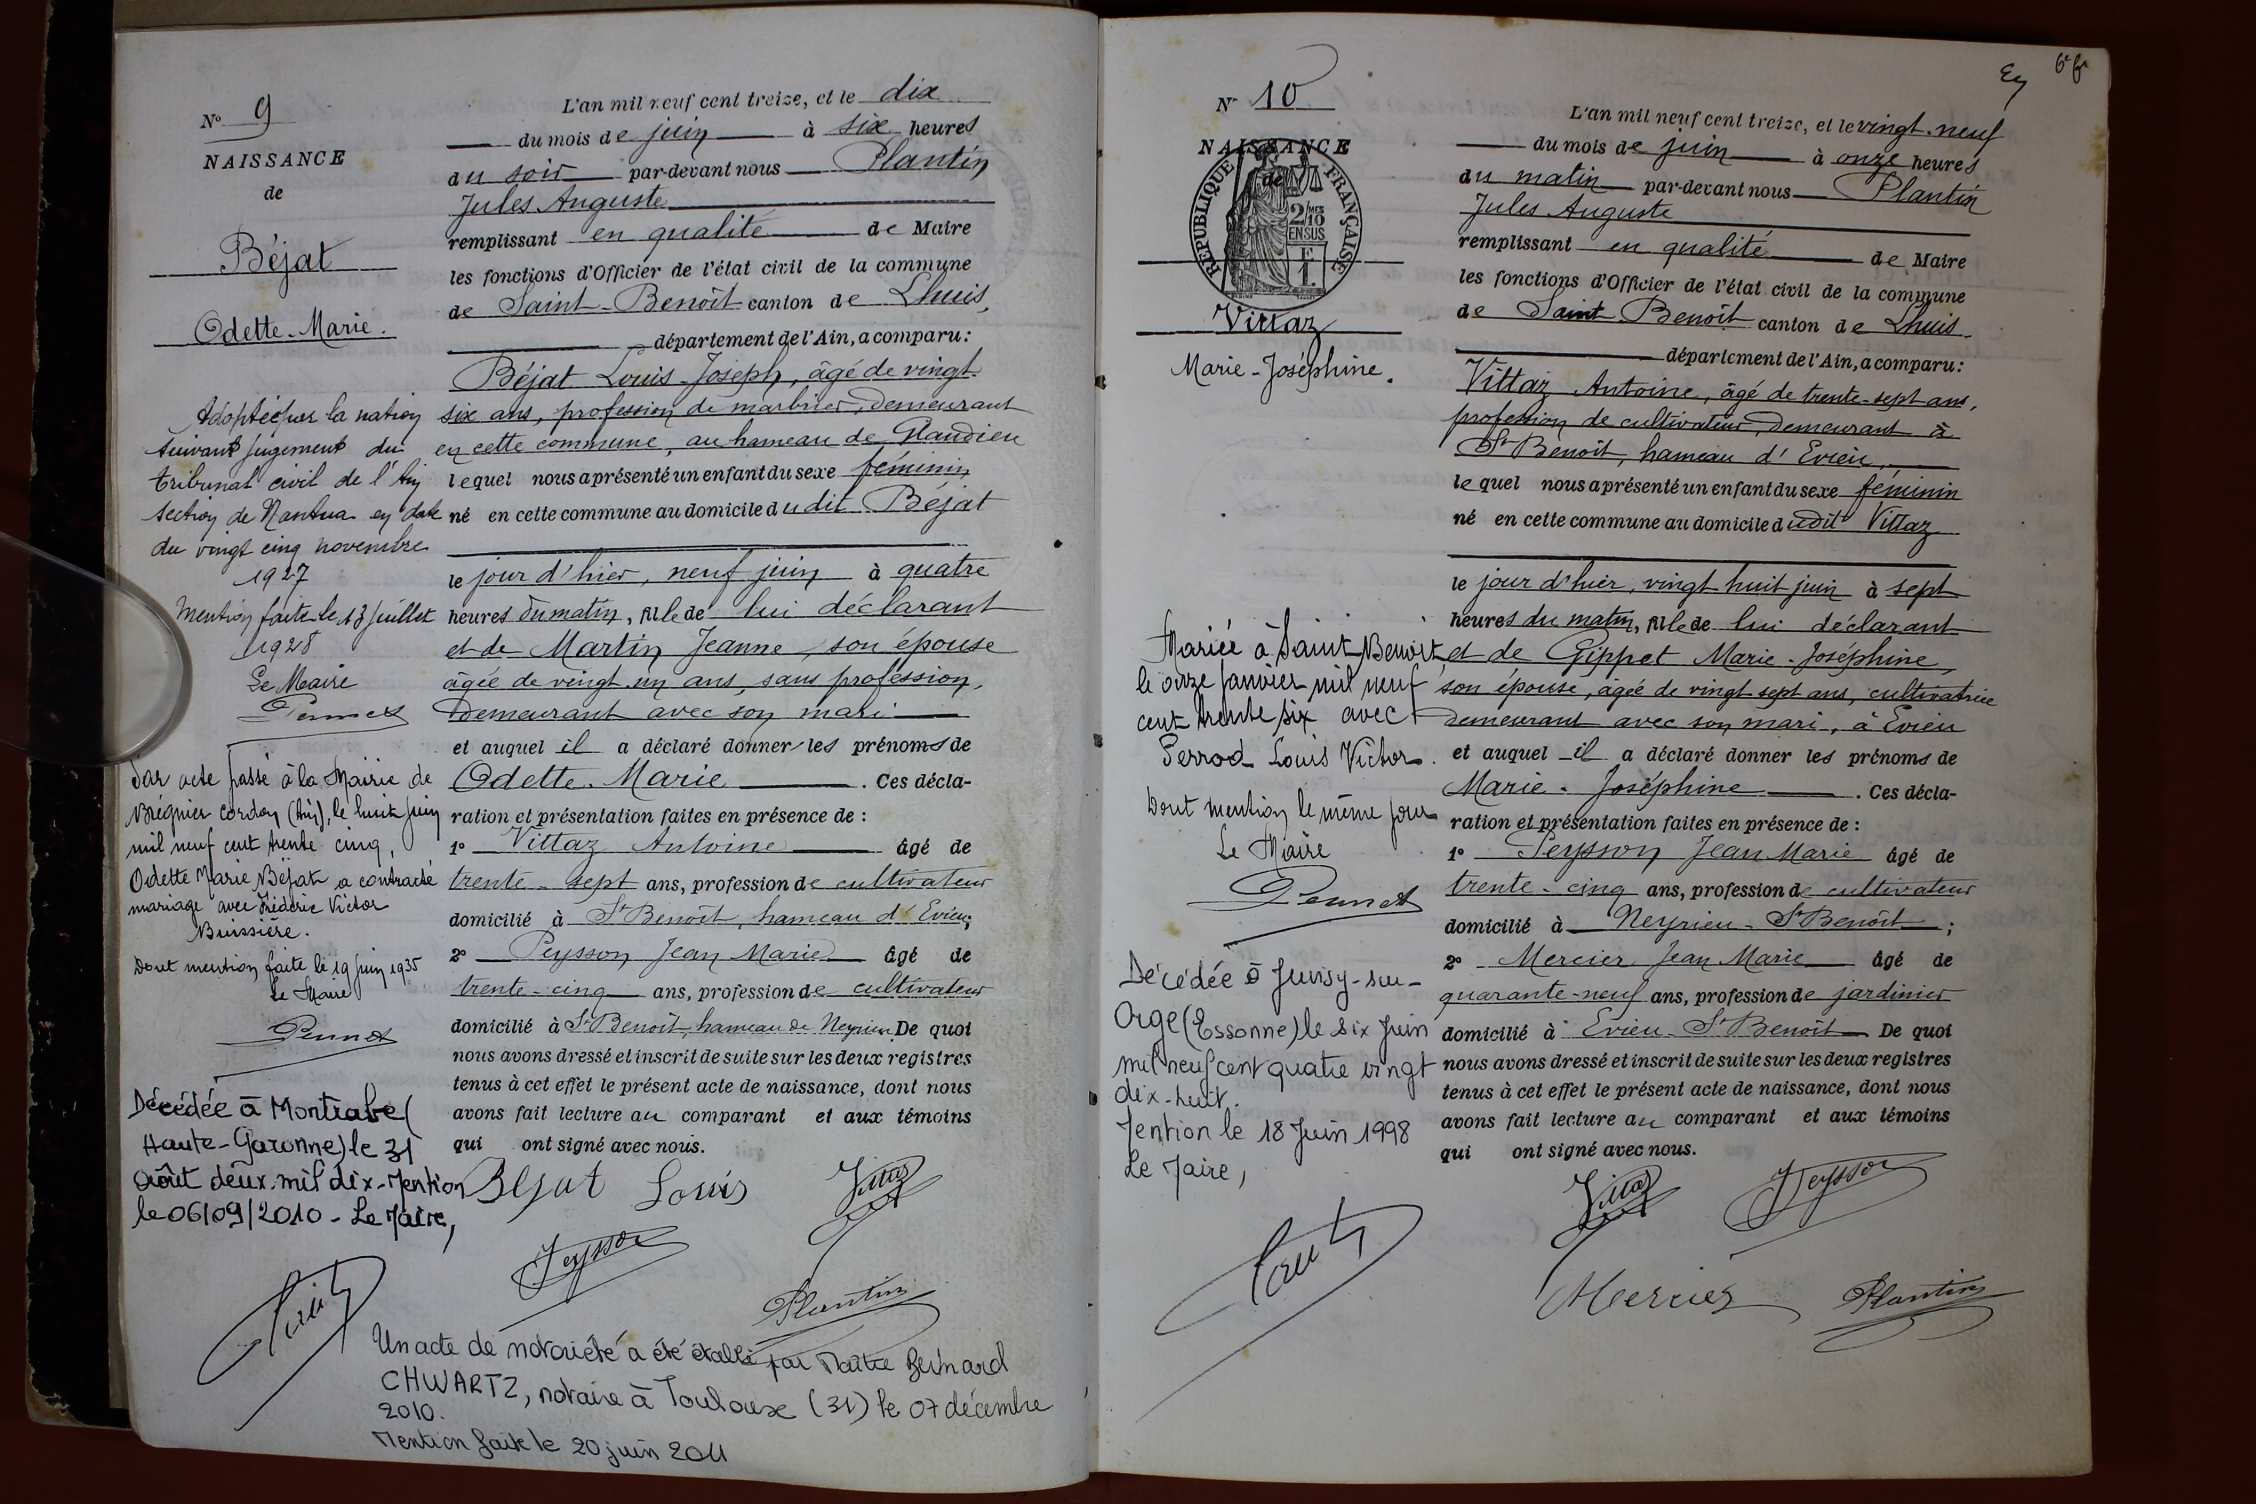 N° 9
NAISSANCE
de
Béjat
Odette-Marie.
Adoptée par la nation
suivant jugement du
tribunal civil de l'Ain
section de Nantua en date
du vingt cinq novembre
1927
Mention faite le 13 juillet
1928
Le Maire
Pennet
Par acte passé à la Mairie de
Brégnier Cordon (Ain), le huit juin
mil neuf cent trente cinq,
Odette Marie Béjat a contracté
mariage avec Frédéric Victor
Buissière.
Dont mention faite le 19 juin 1935
Le Maire
Pennet
Décédée à Montrabe (
Haute-Garonne) le 31
août deux mil dix - Mention
le 06/09/2010 - Le Maire,
L'an mil neuf cent treize, et le dix
du mois de juin à six heures
du soir par-devant nous Plantin
Jules Auguste
remplissant en qualité de Maire
les fonctions d'Officier de l'état civil de la commune
de Saint-Benoît canton de Lhuis,
département de l'Ain, a comparu:
Béjat Louis Joseph, âgé de vingt
six ans, profession de marbrier, demeurant
en cette commune, au hameau de Glandieu
lequel nous a présenté un enfant du sexe féminin
né en cette commune au domicile dudit Béjat
le jour d'hier, neuf juin à quatre
heures du matin, fille de lui déclarant
et de Martin Jeanne, son épouse
âgée de vingt un ans, sans profession,
demeurant avec son mari
et auquel il a déclaré donner les prénoms de
Odette. Marie. Ces décla-
ration et présentation faites en présence de :
1° Vittaz Antoine âgé de
trente-sept ans, profession de cultivateur
domicilié à St Benoît, hameau d'Evieu;
2° Peysson Jean Marie âgé de
trente-cinq ans, profession de cultivateur
domicilié à St Benoît, hameau de Neyrieu De quoi
nous avons dressé et inscrit de suite sur les deux registres
tenus à cet effet le présent acte de naissance, dont nous
avons fait lecture au comparant et aux témoins
qui ont signé avec nous.
Bejat Louis Vittaz
Peysson
Plantin
Un acte de notoriété a été établi par Maître Bernard
CHWARTZ, notaire à Toulouse (31) le 07 décembre
2010.
Mention faite le 20 juin 2011
6e fr
N° 10
NAISSANCE
de
REPUBLIQUE FRANÇAISE
2/10 MES
EN SUS
F
1
Vittaz
Marie-Joséphine.
Mariée à Saint Benoit,
le onze Janvier mil neuf
cent trente six avec
Perrod Louis Victor.
Dont mention le même jour
Le Maire
Pennet
Décédée à Juvisy-sur-
Orge (Essonne) le six Juin
mil neuf cent quatre vingt
dix-huit.
Mention le 18 Juin 1998
Le Maire,
L'an mil neuf cent treize, et le vingt-neuf
du mois de juin à onze heures
du matin par-devant nous Plantin
Jules Auguste
remplissant en qualité de Maire
les fonctions d'Officier de l'état civil de la commune
de Saint Benoît canton de Lhuis
département de l'Ain, a comparu:
Vittaz Antoine, âgé de trente-sept ans,
profession de cultivateur, demeurant à
St Benoît, hameau d'Evieu,
lequel nous a présenté un enfant du sexe féminin
né en cette commune au domicile dudit Vittaz
le jour d'hier, vingt huit juin à sept
heures du matin, fille de lui déclarant
et de Gippet Marie-Joséphine,
son épouse, âgée de vingt sept ans, cultivatrice
demeurant avec son mari, à Evieu
et auquel il a déclaré donner les prénoms de
Marie-Joséphine. Ces décla-
ration et présentation faites en présence de :
1° Peysson Jean Marie âgé de
trente-cinq ans, profession de cultivateur
domicilié à Neyrieu-St Benoît;
2° Mercier Jean Marie âgé de
quarante-neuf ans, profession de jardinier
domicilié à Evieu-St Benoît De quoi
nous avons dressé et inscrit de suite sur les deux registres
tenus à cet effet le présent acte de naissance, dont nous
avons fait lecture au comparant et aux témoins
qui ont signé avec nous.
Vittaz Peysson
Mercier Plantin